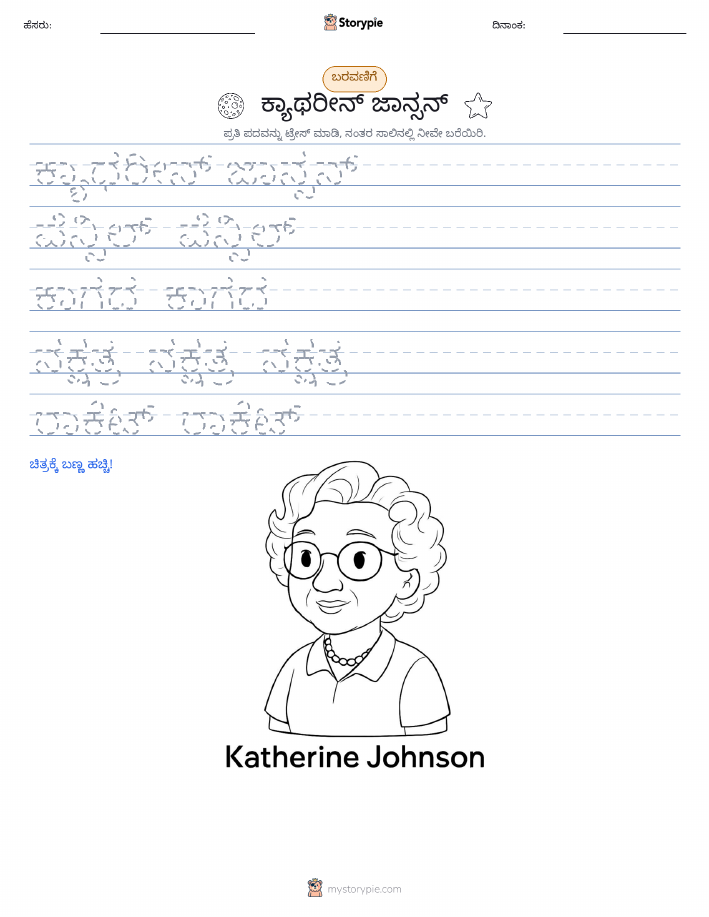 ಹೆಸರು:
Storypie
ದಿನಾಂಕ:
ಬರವಣಿಗೆ
ಕ್ಯಾಥರೀನ್ ಜಾನ್ಸನ್
ಪ್ರತಿ ಪದವನ್ನು ಟ್ರೇಸ್ ಮಾಡಿ, ನಂತರ ಸಾಲಿನಲ್ಲಿ ನೀವೇ ಬರೆಯಿರಿ.
ಕ್ಯಾಥರೀನ್ ಜಾನ್ಸನ್
ಪೆನ್ಸಿಲ್ ಪೆನ್ಸಿಲ್
ಕಾಗದ ಕಾಗದ
ನಕ್ಷತ್ರ ನಕ್ಷತ್ರ ನಕ್ಷತ್ರ
ರಾಕೆಟ್ ರಾಕೆಟ್
ಚಿತ್ರಕ್ಕೆ ಬಣ್ಣ ಹಚ್ಚಿ!
Katherine Johnson
mystorypie.com